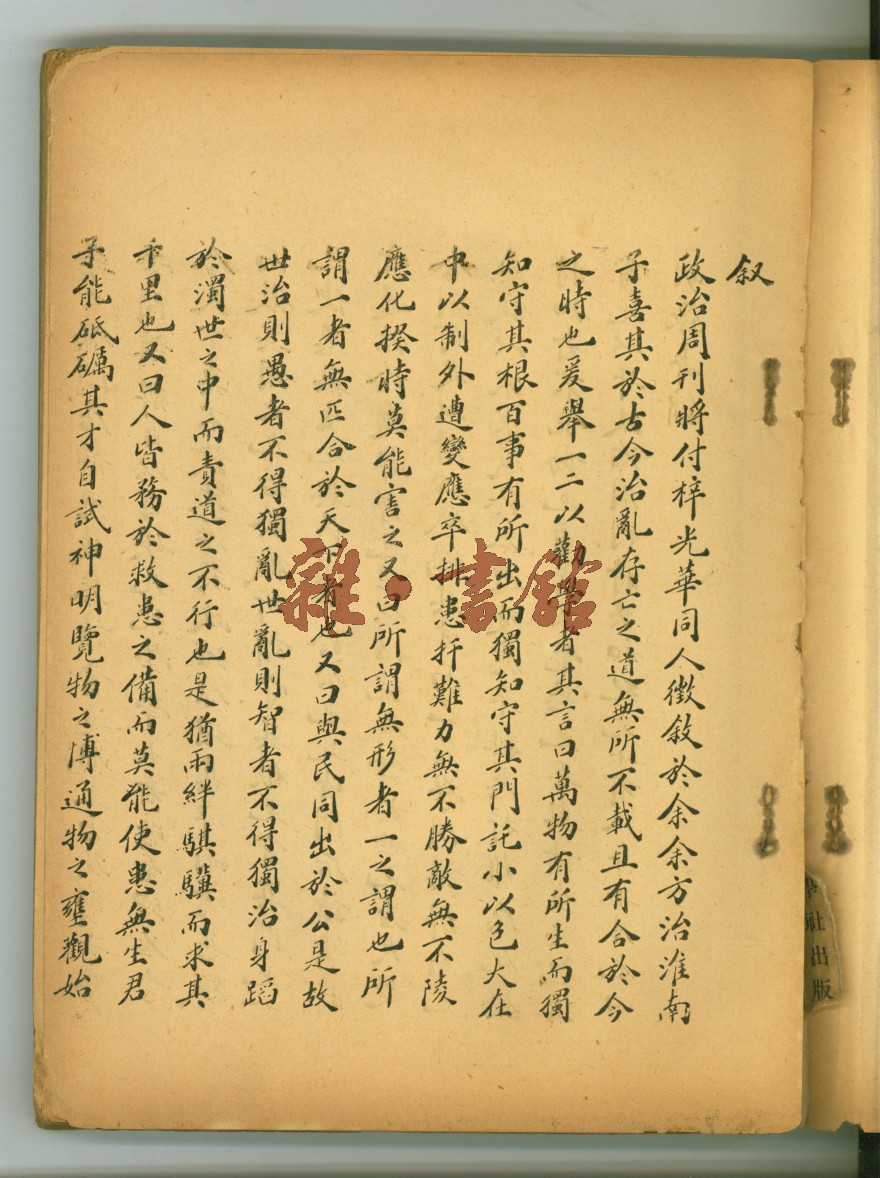 叙
政治周刊將付梓光華同人徵敘於余余方治淮南
子喜其於古今治亂存亡之道無所不載且有合於今
之時也爰舉一二以勸學者其言曰萬物有所生而獨
知守其根百事有所出而獨知守其門託小以包大在
中以制外遭變應卒排患扞難力無不勝敵無不陵
應化揆時莫能害之又曰所謂無形者一之謂也所
謂一者無匹合於天下者也又曰與民同出於公是故
世治則愚者不得獨亂世亂則智者不得獨治身蹈
於濁世之中而責道之不行也是猶兩絆騏驥而求其
千里也又曰人皆務於救患之備而莫能使患無生君
子能砥礪其才自試神明覽物之博通物之壅觀始
雜·書館
社出版